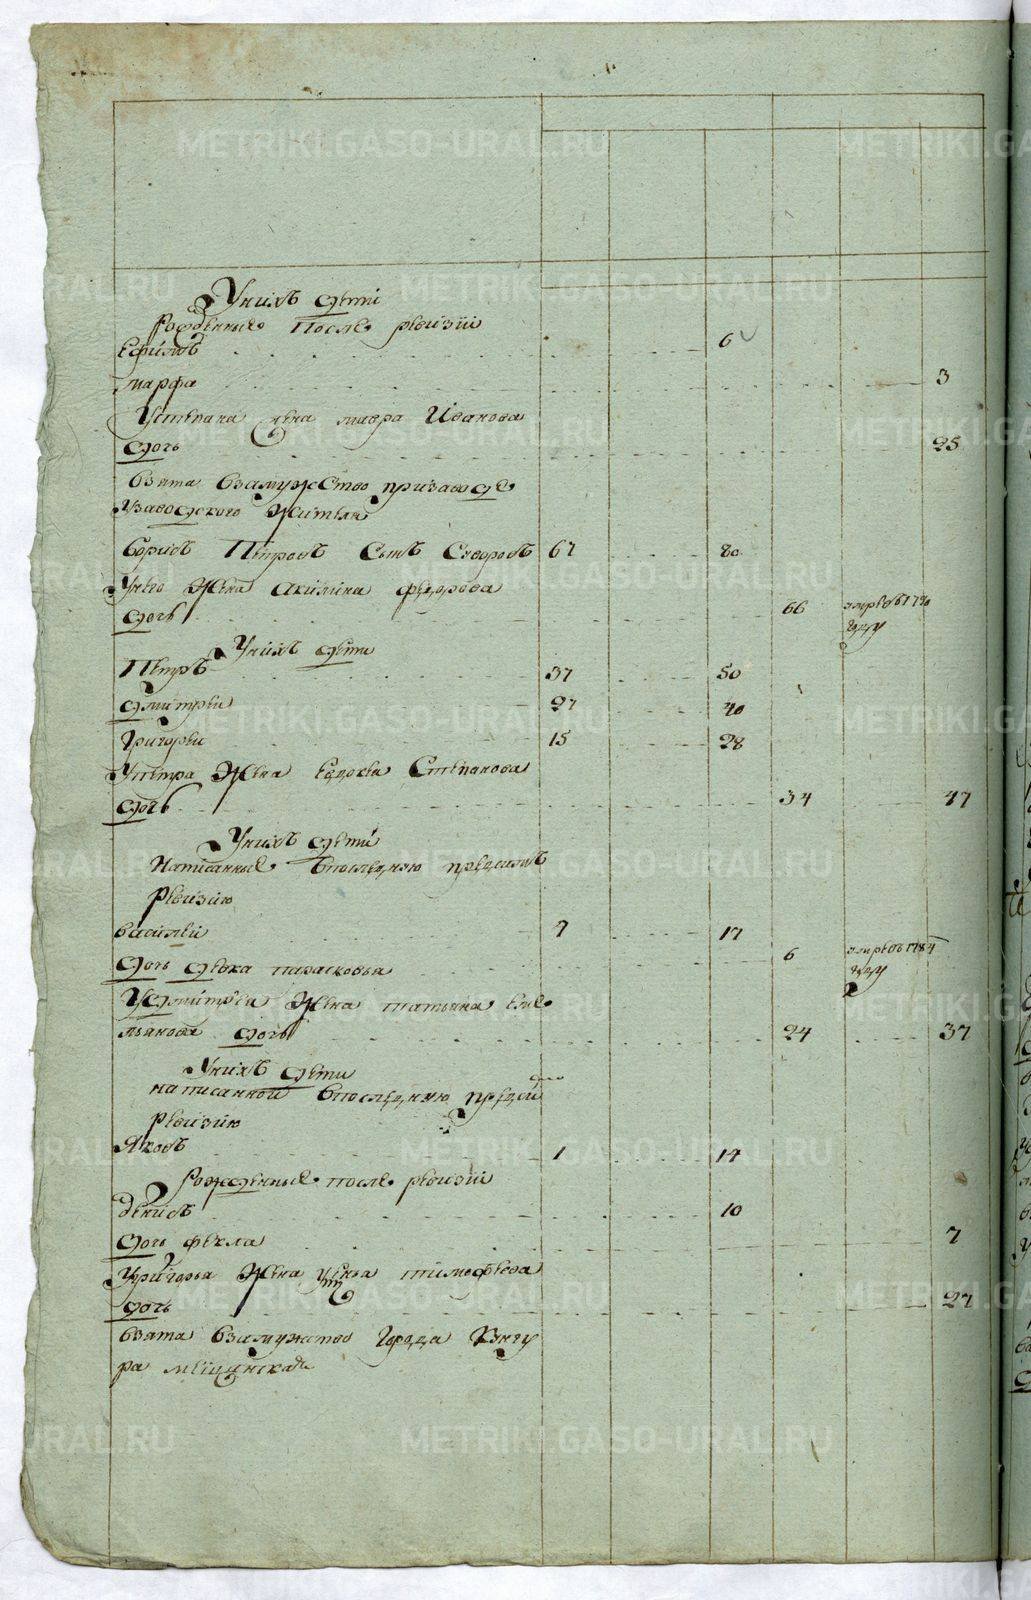 У нихъ дѣти
Рожденные после ревизии
Ефимъ 6
марфа 3
У степана жена мавра Иванова
дочь 25
взята взамужство при заводе
заводского жителя
борисъ Петровъ сынъ 67 80
У него жена акилина федорова
дочь 66 умре въ 1790
году
У нихъ дети
Петръ 37 50
дмитреи 27 40
Григореи 15 28
У петра жена Степанова
дочь 34 47
У нихъ дети
написанные в последнюю пред симъ
ревизию
василеи 7 17
дочь девка парасковья 6 умре въ 1784
году
У дмитрея жена татьяна Еме
льянова дочь 24 37
У нихъ дети
написанной в последнюю пред сей
ревизию
Яковъ 1 14
рожденные после ревизии
денисъ 10
дочь фекла 7
У григорья жена тимофеева
дочь 27
взята взамужство города Кунгу
ра мещанская
METRIKI.GASO-URAL.RU